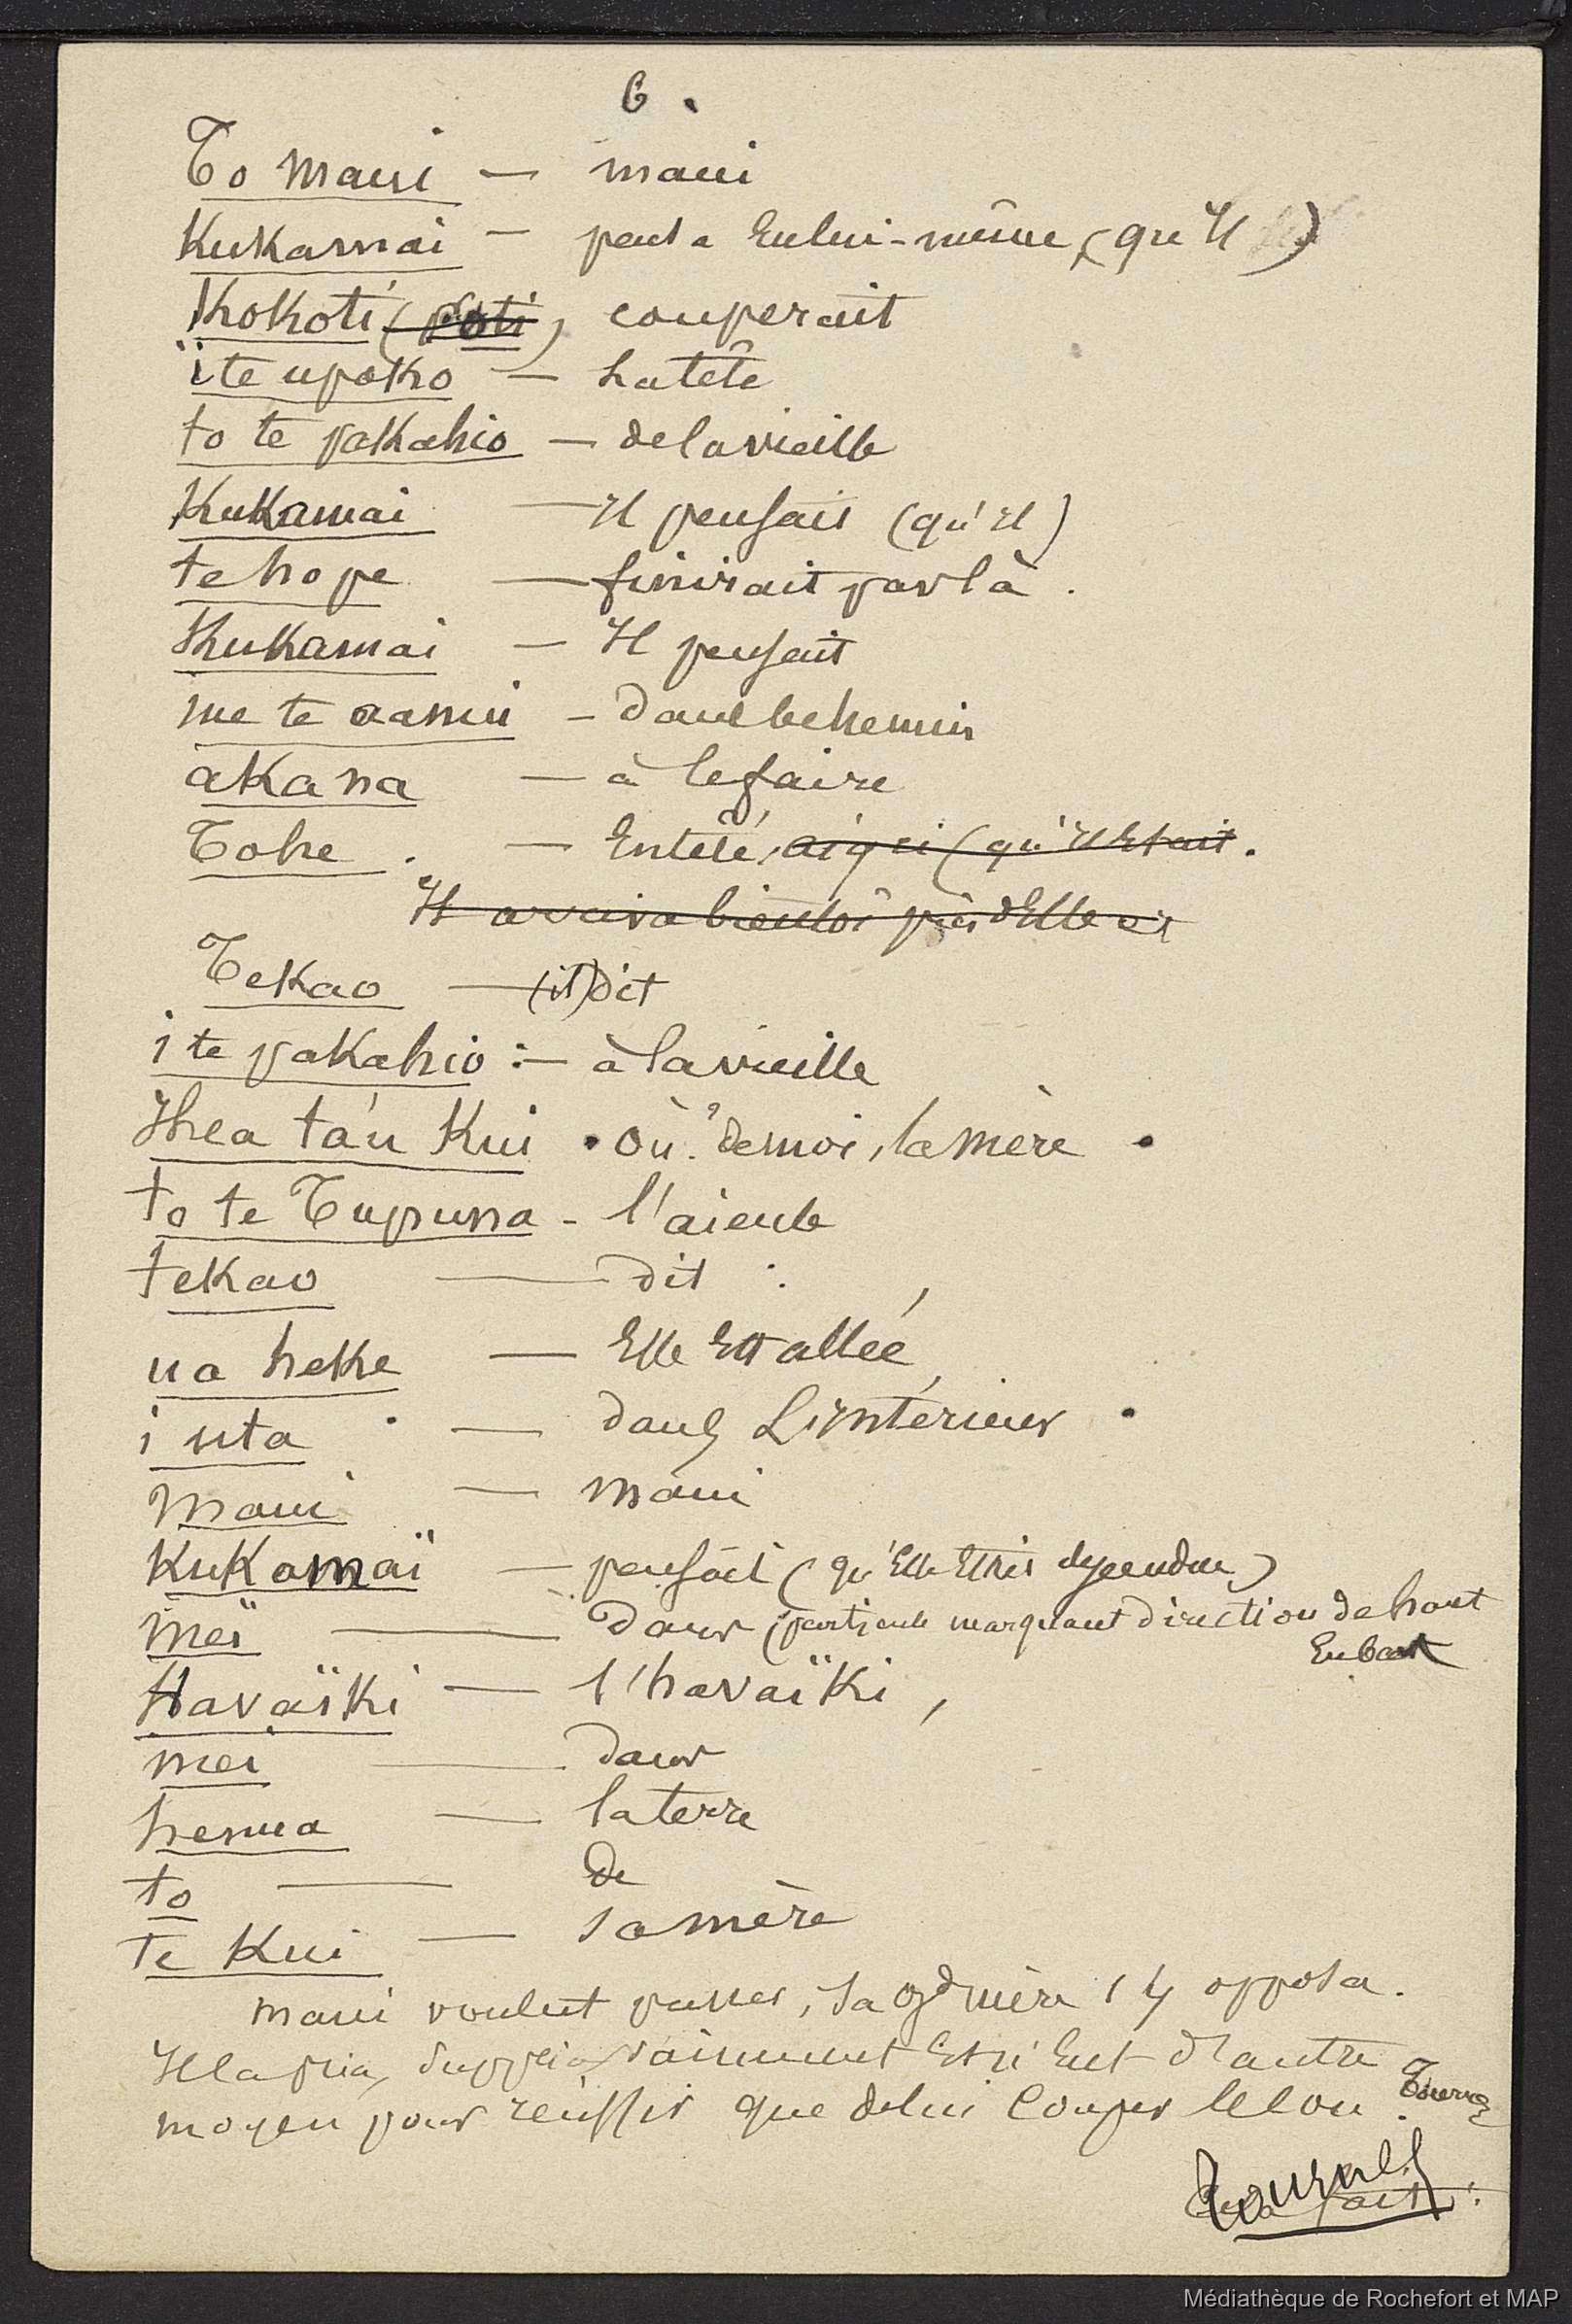 6.
To Maui — maui
Kukamai — pensa En lui-même, (qu'Il )
Kokoti (poti) couperait
ïte upoko — la tête
to te pakahio — de la vieille
Kukamai — Il pensait (qu'Il)
te hope — finirait par là.
Kukamai — Il pensait
me te aanui — dans le chemin
akana — à le faire
Tohe. — Entêté, ainsi (qu'Il Etait.
Il arriva bientôt près d'Elle et
Tekao — (il) dit
i te pakahio :— à la vieille
Ihea ta'u Kui . Où ? de moi, la mère .
to te Tupuna - l'aieule
tekao — dit :
ua heke — Elle Est allée,
i uta — dans L'intérieur .
Maui — maui
Kukamaï — pensait (qu'Elle Etait descendue)
meï — dans (particule marquant direction de haut
En bas
Havaïki — l'havaïki,
mei — dans
henua — la terre
to — de
te Kui — sa mère
Maui voulut passer, sa gd mère s'y opposa.
Il la pria, supplia vainement Et n'Eut d'autre
moyen pour réussir que de lui Couper le cou.
Tournez